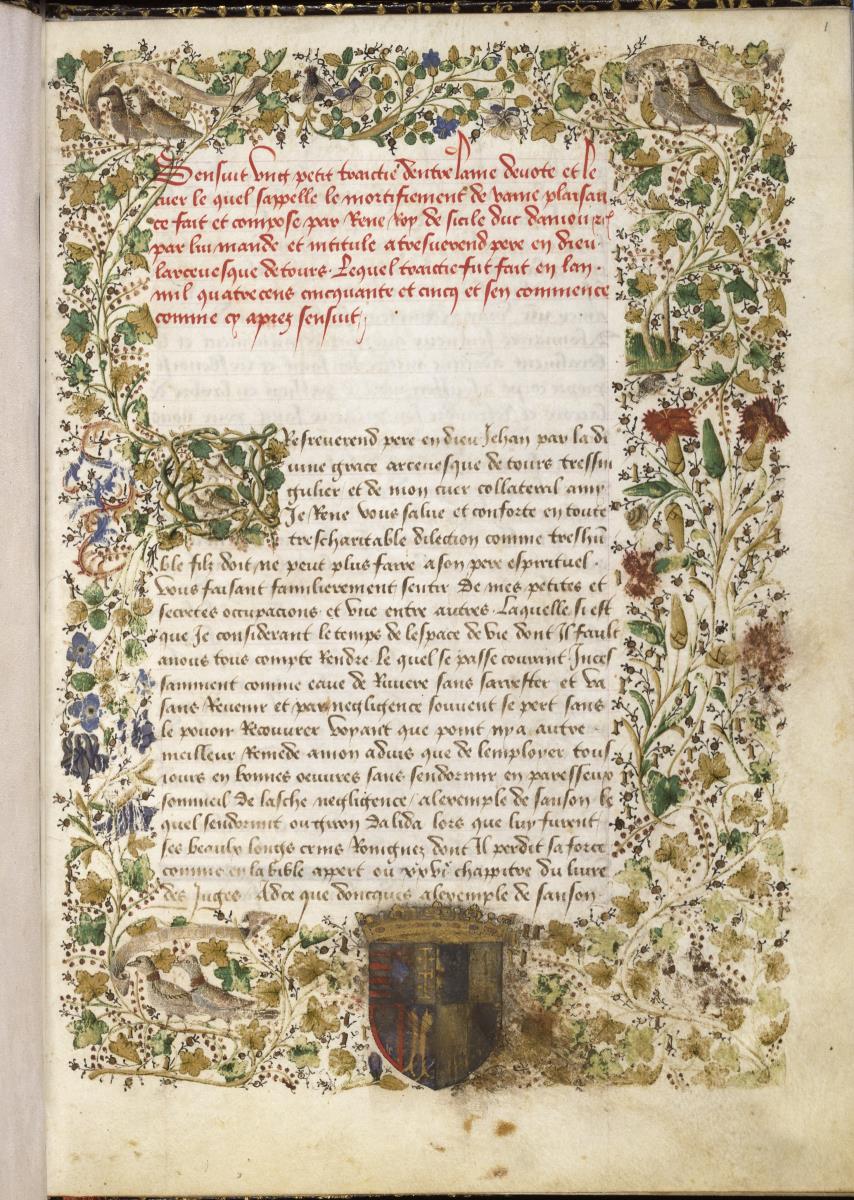 1
Sensuit ung petit traictie dentre lame devote et le
cuer le quel sappelle le mortifiement de vaine plaisan
ce fait et compose par Rene Roy de sicile duc daniou
par lui mande et intitule a tresreverend pere en dieu
larcevesque de tours. Lequel traictie fut fait en lan.
mil quatrecens cincquante et cincq et sen commence
comme cy apres sensuit
Tresreverend pere en dieu Jehan par la di
uine grace arcevesque de tours tressin
gulier et de mon cuer collateral amy
Je Rene vous salue et conforte en toute
trescharitable dilection comme treshu
ble filz doit ne peut plus faire a son pere espirituel.
vous faisant familierement sentir de mes petites et
secretes occupacions et une entre autres. Laquelle si est
que Je considerant le temps de lespace de vie dont Il fault
a nous tous compte Rendre. Le quel se passe courant Inces
samment comme eaue de Riviere sans sarrester et va
sans Revenir et par negligence souvent se pert sans
le povoir Recouvrer voyant que point ny a autre
meilleur Remede a mon advis que de lemployer tous
iours en bonnes oeuvres sans sendormir en paresseux
sommeil de lasche negligence / a lexemple de sanson le
quel sendormit ou giron dalida lors que luy furent
ses beaulx longs crins Rongnez dont Il perdit sa force
comme en la bible appert ou xvvi chappitre du livre
des Juges. Adce que doncques a lexemple de sanson